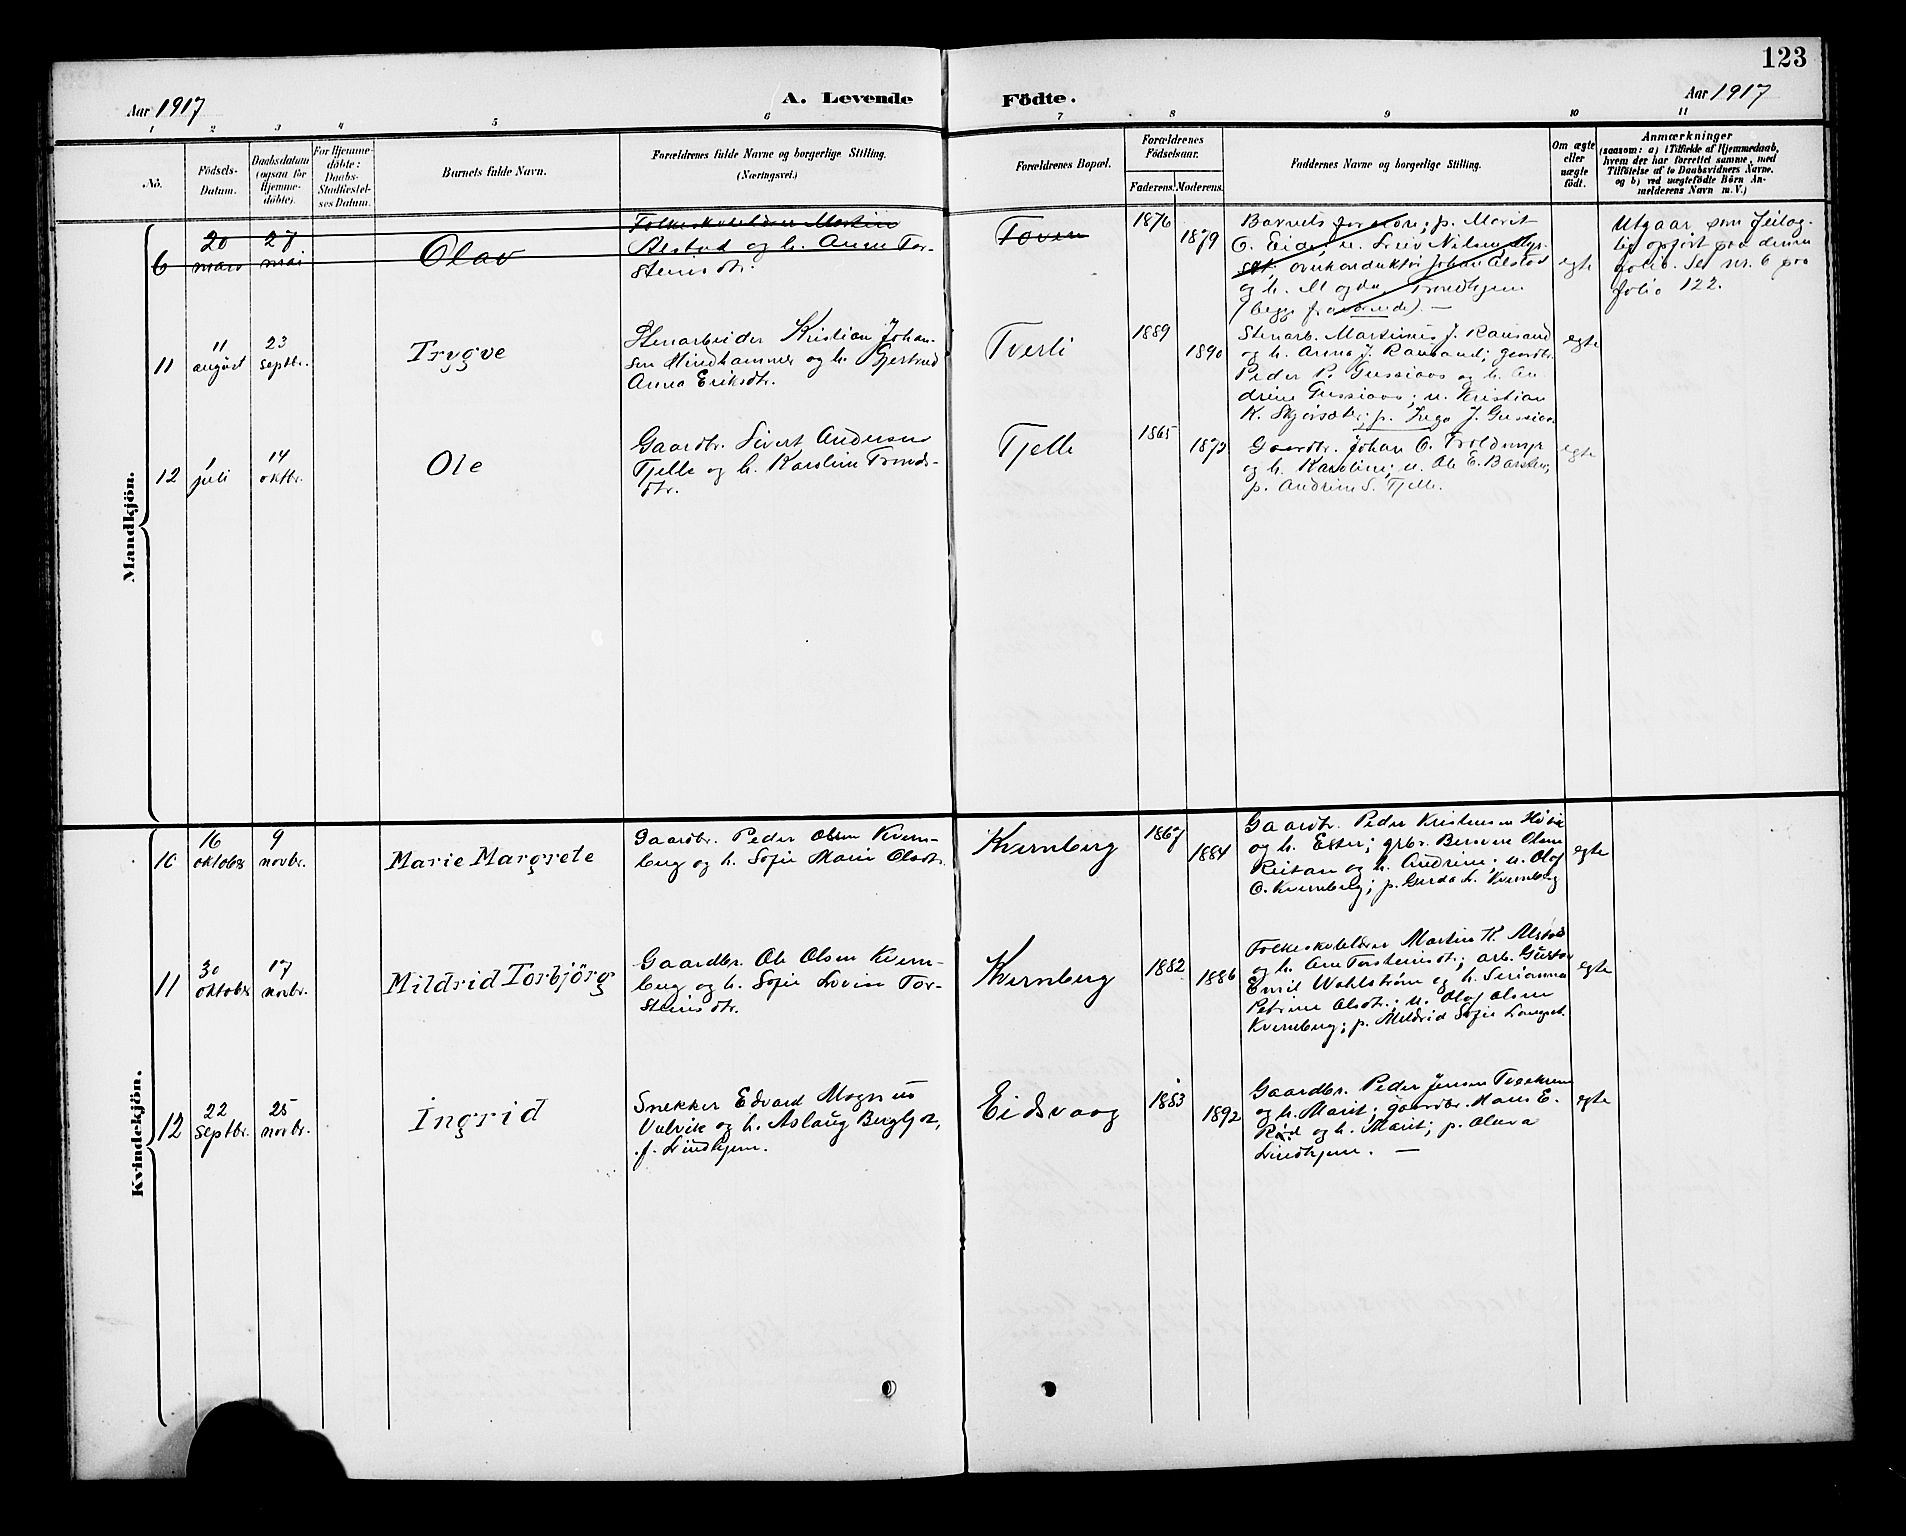 123
Aar 1917
A. Levende Födte.
Aar 1917
1 2 3 4 5 6 7 8 9 10 11
No.
Födsels-
Datum.
Daabsdatum
(ogsaa for
Hjemme-
döbte).
For Hjemme-
döbte:
Daabs-
Stadfæstel-
ses Datum.
Barnets fulde Navn.
Forældrenes fulde Navne og borgerlige Stilling.
(Næringsvei.)
Forældrenes Bopæl.
Forældrenes
Fødselsaar.
Faderens. Moderens.
Faddernes Navne og borgerlige Stilling.
Om ægte
eller
uægte
födt.
Anmærkninger
(saasom: a) i Tilfælde af Hjemmedaab,
hvem der har forrettet samme, med
Tilföielse af to Daabsvidners Navne,
og b) ved uægtefödte Börn An-
melderens Navn m. V.)
Mandkjön.
6
20
mars
27
mai
Olav
Folkeskolelærer Martin
Alstad og h. Anne Tor-
steinsdtr.
Toven
1876
1879
Barnets forældre; p. Marit
O. Eide; u. Nilsen
overkonduktör Johan Alstad
og h. Magda, Trondhjem
(begge fraværende). —
egte
Utgaar som feilag-
tig opført paa denne
folio. Se nr. 6 paa
folio 122.
11
11
august
23
septbr.
Trygve
Stenarbeider Kristian Johan-
sen Hindhammer og h. Gjertrud
Anna Eriksdtr.
Tverli
1889
1890
Stenarb. Martinus J. Ransand
og h. Anna J. Ransand; gaardbr.
Peder P. Gussiaas og h. An-
drine Gussiaas; u. Kristian
K. Skjørsæter; p. Inga J. Gussiaas
egte
12
1
juli
14
oktbr.
Ole
Gaardbr. Sivert Andersen
Tjelle og h. Karoline Tronds-
dtr.
Tjelle
1865
1872
Gaardbr. Johan O. Troldmyr
og h. Karoline; u. Ole E.
p. Andrine S. Tjelle.
egte
Kvindekjön.
10
16
oktober
9
novbr.
Marie Margrete
Gaardbr. Peder Olsen Kvern-
berg og h. Sofie Marie Olsdtr.
Kvernberg
1867
1884
Gaardbr. Peder Kristensen
og h. Ester; grbr. Olsen
Reitan og h. Andrine; u. Olaf
O. Kvernberg; p. Gerda h. Kvernberg
egte
11
30
oktober
17
novbr.
Mildrid Torbjörg
Gaardbr. Ole Olsen Kvern-
berg og h. Sofie Lovise Tor-
steinsdtr.
Kvernberg
1882
1886
Folkeskolelærer Martin K. Alstad
og h. Ane Torsteinsdtr; arb. Gustav
Emil Wahlström og h. Serianna
Petrine Olsdtr.; u. Olaf Olsen
Kvernberg; p. Mildrid Sofie
egte
12
22
septbr.
25
novbr.
Ingrid
Snekker Edvard Magnus
Vulvik og h. Aslaug Bergljot,
f. Lindhjem.
Eidsvaag
1883
1892
Gaardbr. Peder Jensen
og h. Marit; gaardbr. Hans E.
Rød og h. Marit; p. Olava
Lindhjem. —
egte